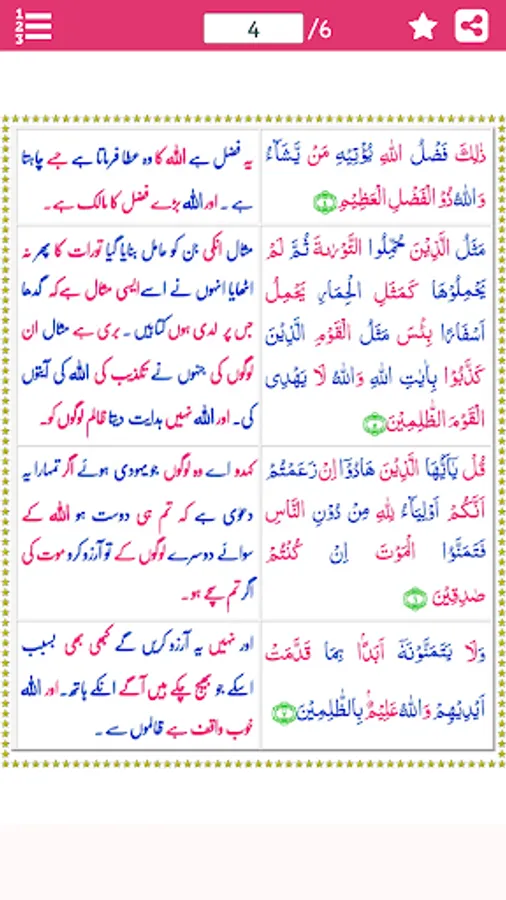 1
2
3
4 /6
ذٰلِكَ فَضْلُ اللّٰهِ يُؤْتِيْهِ مَنْ يَّشَآءُ
وَاللّٰهُ ذُو الْفَضْلِ الْعَظِيْمِ
یہ فضل ہے اللہ کا وہ عطا فرماتا ہے جسے چاہتا
ہے ۔ اور اللہ بڑے فضل کا مالک ہے ۔
مَثَلُ الَّذِيْنَ حُمِّلُوا التَّوْرٰىةَ ثُمَّ لَمْ
يَحْمِلُوْهَا كَمَثَلِ الْحِمَارِ يَحْمِلُ
اَسْفَارًا بِئْسَ مَثَلُ الْقَوْمِ الَّذِيْنَ
كَذَّبُوْا بِاٰيٰتِ اللّٰهِ وَاللّٰهُ لَا يَهْدِى
الْقَوْمَ الظّٰلِمِيْنَ
مثال انکی جن کو حامل بنایا گیا تورات کا پھر نہ
اٹھایا انہوں نے اسے ایسی مثال ہے کہ گدھا
جس پر لدی ہوں کتابیں ۔ بری ہے مثال ان
لوگوں کی جنہوں نے تکذیب کی اللہ کی آیتوں
کی۔ اور اللہ نہیں ہدایت دیتا ظالم لوگوں کو۔
قُلْ يٰۤاَيُّهَا الَّذِيْنَ هَادُوْۤا اِنْ زَعَمْتُمْ
اَنَّكُمْ اَوْلِيَآءُ لِلّٰهِ مِنْ دُوْنِ النَّاسِ
فَتَمَنَّوُا الْمَوْتَ اِنْ كُنْتُمْ
صٰدِقِيْنَ ٦
کہدو اے وہ لوگوں جو یہودی ہوئے اگر تمہارا یہ
دعوی ہے کہ تم ہی دوست ہو اللہ کے
سوائے دوسرے لوگوں کے تو آرزو کرو موت کی
اگر تم سچے ہو ۔
وَلَا يَتَمَنَّوْنَهٗۤ اَبَدًۢا بِمَا قَدَّمَتْ
اَيْدِيْهِمْ وَاللّٰهُ عَلِيْمٌۢ بِالظّٰلِمِيْنَ ٧
اور نہیں یہ آرزو کریں گے کبھی بھی بسبب
اسکے جو بھیج چکے ہیں آگے انکے ہاتھ۔ اور اللہ
خوب واقف ہے ظالموں سے ۔